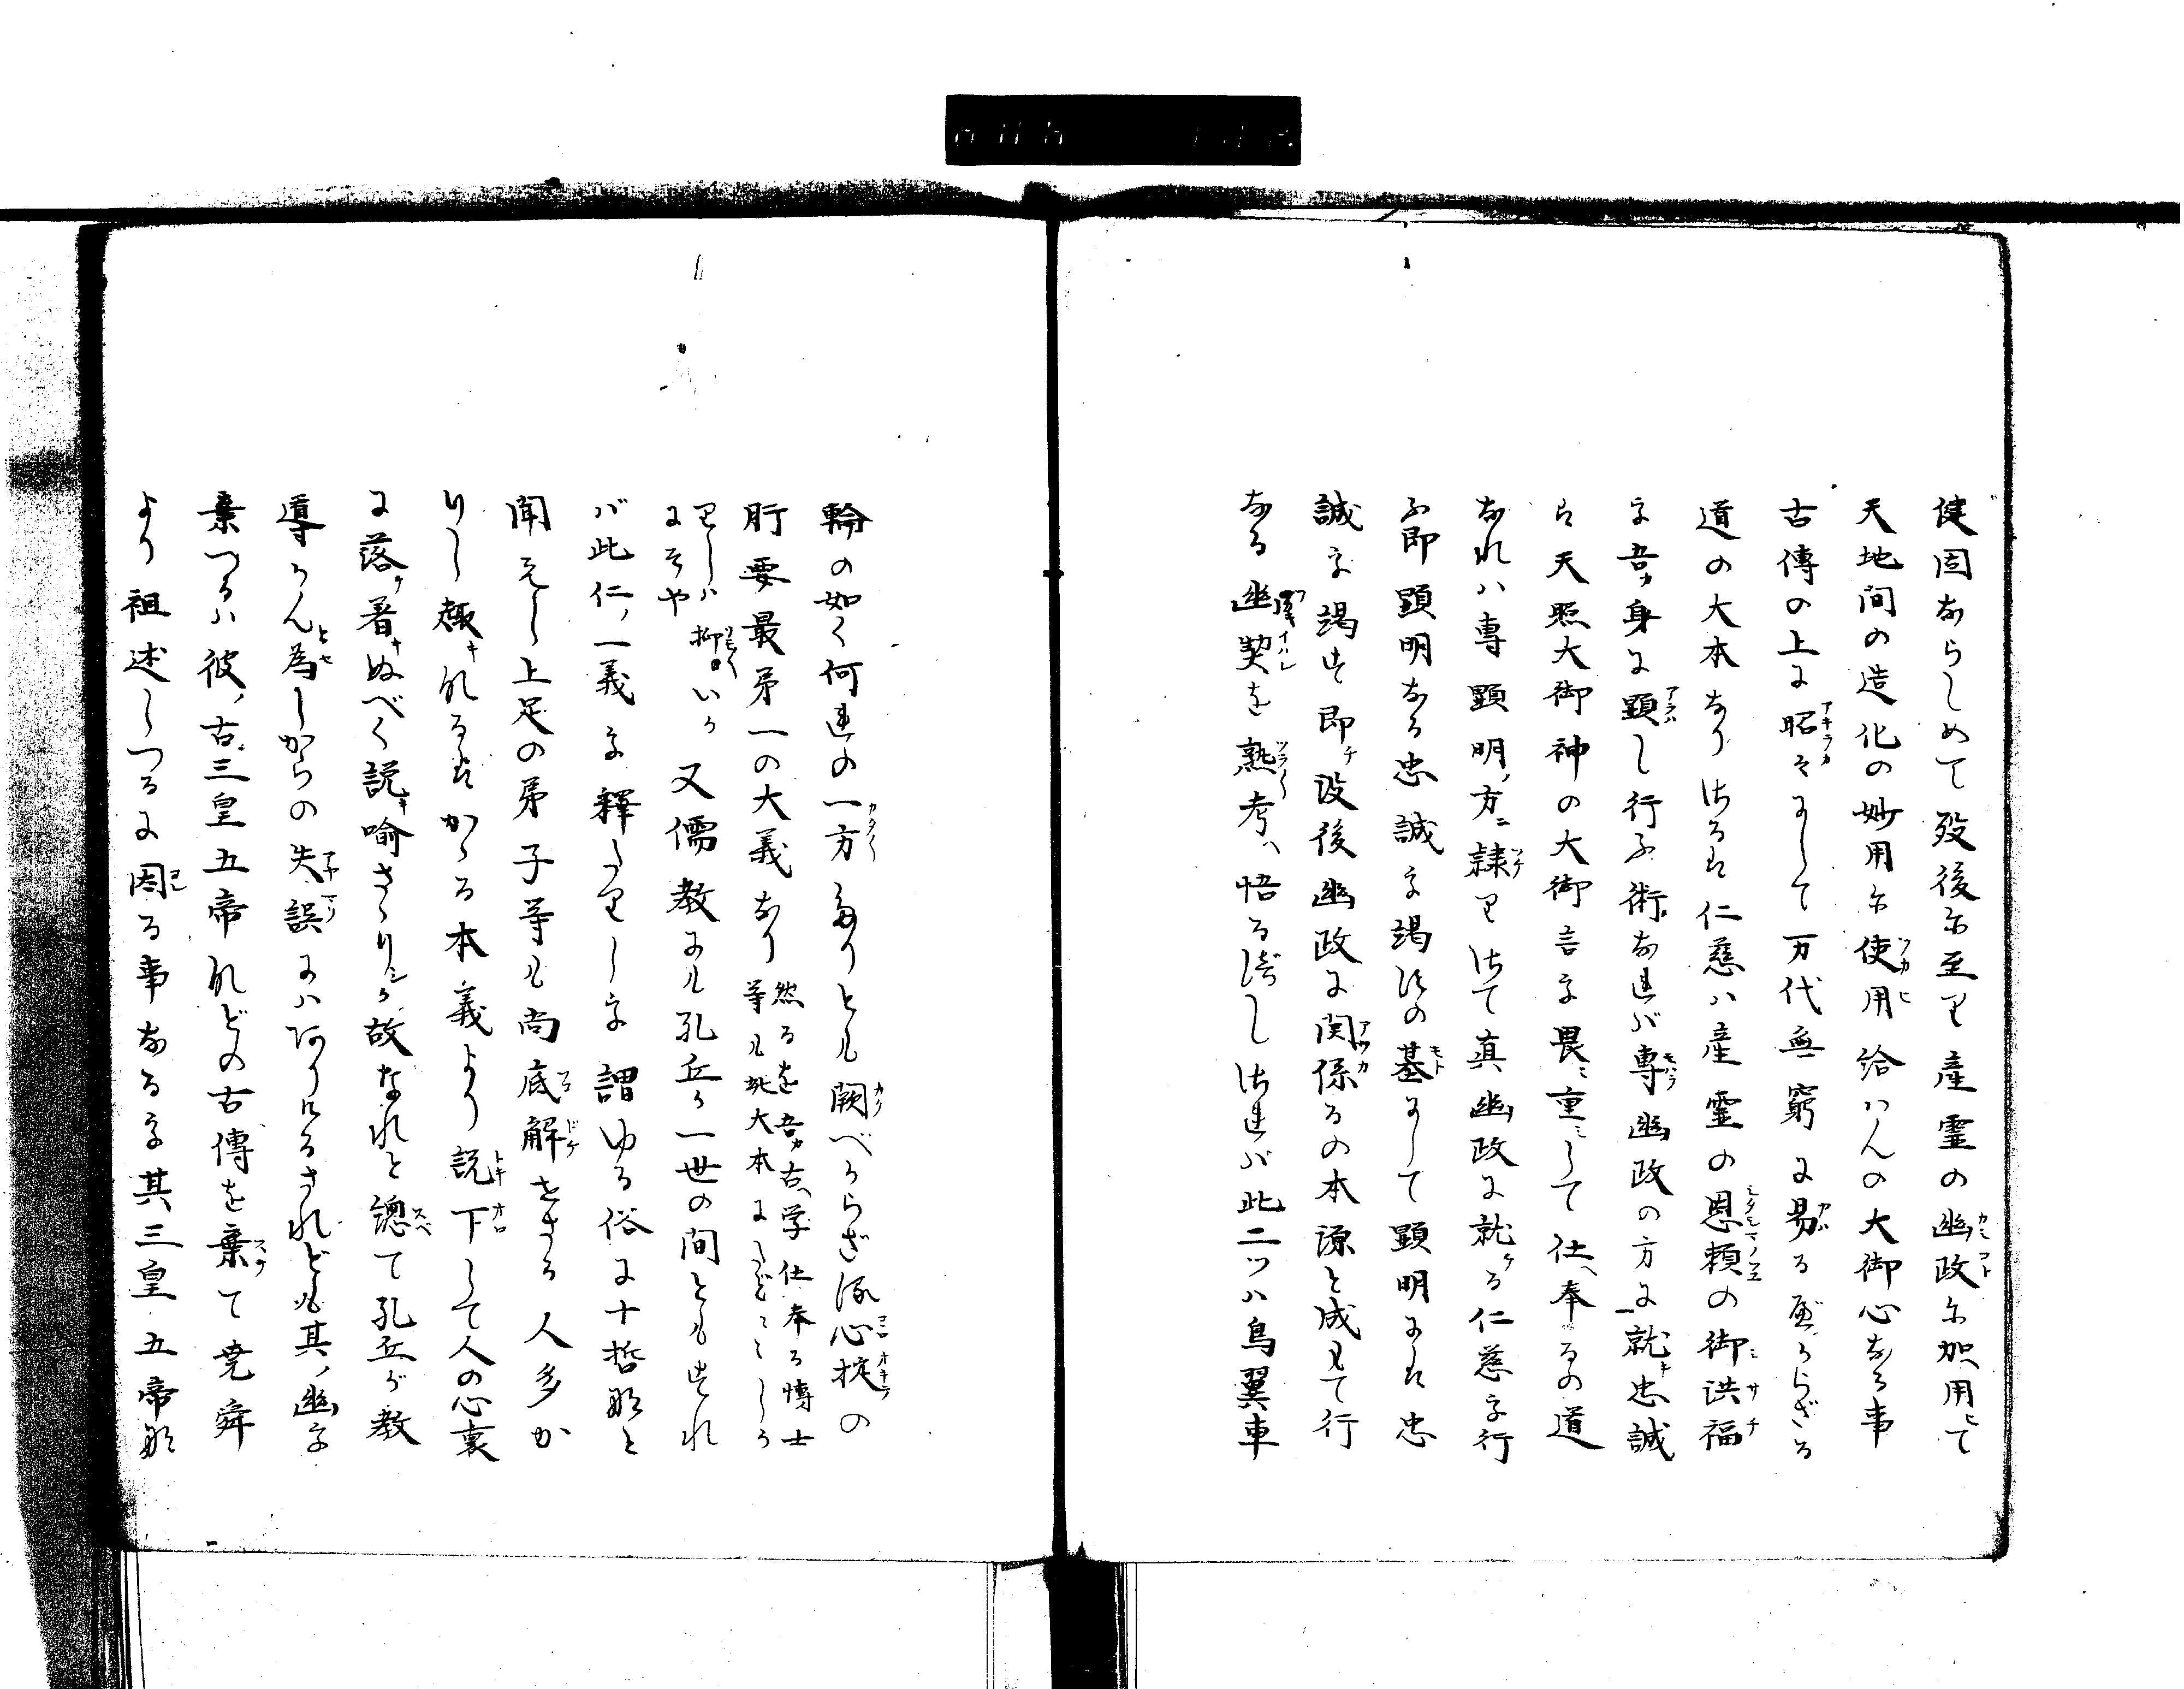 健固ならしめて歿後尓至り産霊の幽政尓加用して
天地間の造化の妙用尓使用給はんの大御心なる事
古傳の上に昭々にして万代無窮に易る可からざる
道の大本なりけるは仁慈ハ産霊の恩頼の御洪福
を吾カ身に顕し行ふ術なればバ専幽政の方に就キ忠誠
は天照大御神の大御言を畏ミ重ミして仕ヘ奉るの道
なれハ専顕明ノ方ニ隷りけて真幽政に就ケる仁慈を行
ふ即顕明なる忠誠を竭すの基にして顕明には忠
誠を竭す即チ没後幽政に関係るの本源と成もて行
なる幽契を熟考ヘ悟る べし ければ此二ツハ鳥翼車
輪の如く何連の一方なりとも闕べからざる心掟の
肝要最第一の大義なり 然るを吾カ古ヘ学仕奉る博士
等も此大本に
りしハ
にそや 抑 いか 又儒教にも孔丘が一世の間とも すれ
バ此仁ノ一義を釋たりしを謂ゆる俗に十哲など
聞えし上足の弟子等も尚底解せざる人多か
りし趣キなるはかゝる本義より説下して人の心裏
に落ケ著キぬべく説キ喩さゝりしか故なれと總て孔丘が教
導らん為しからの失誤にハ阿りけるされども其ノ幽を
棄つるハ彼ノ古三皇五帝などの古傳を棄て堯舜
より祖述しつるに因る事なるを其三皇五帝など